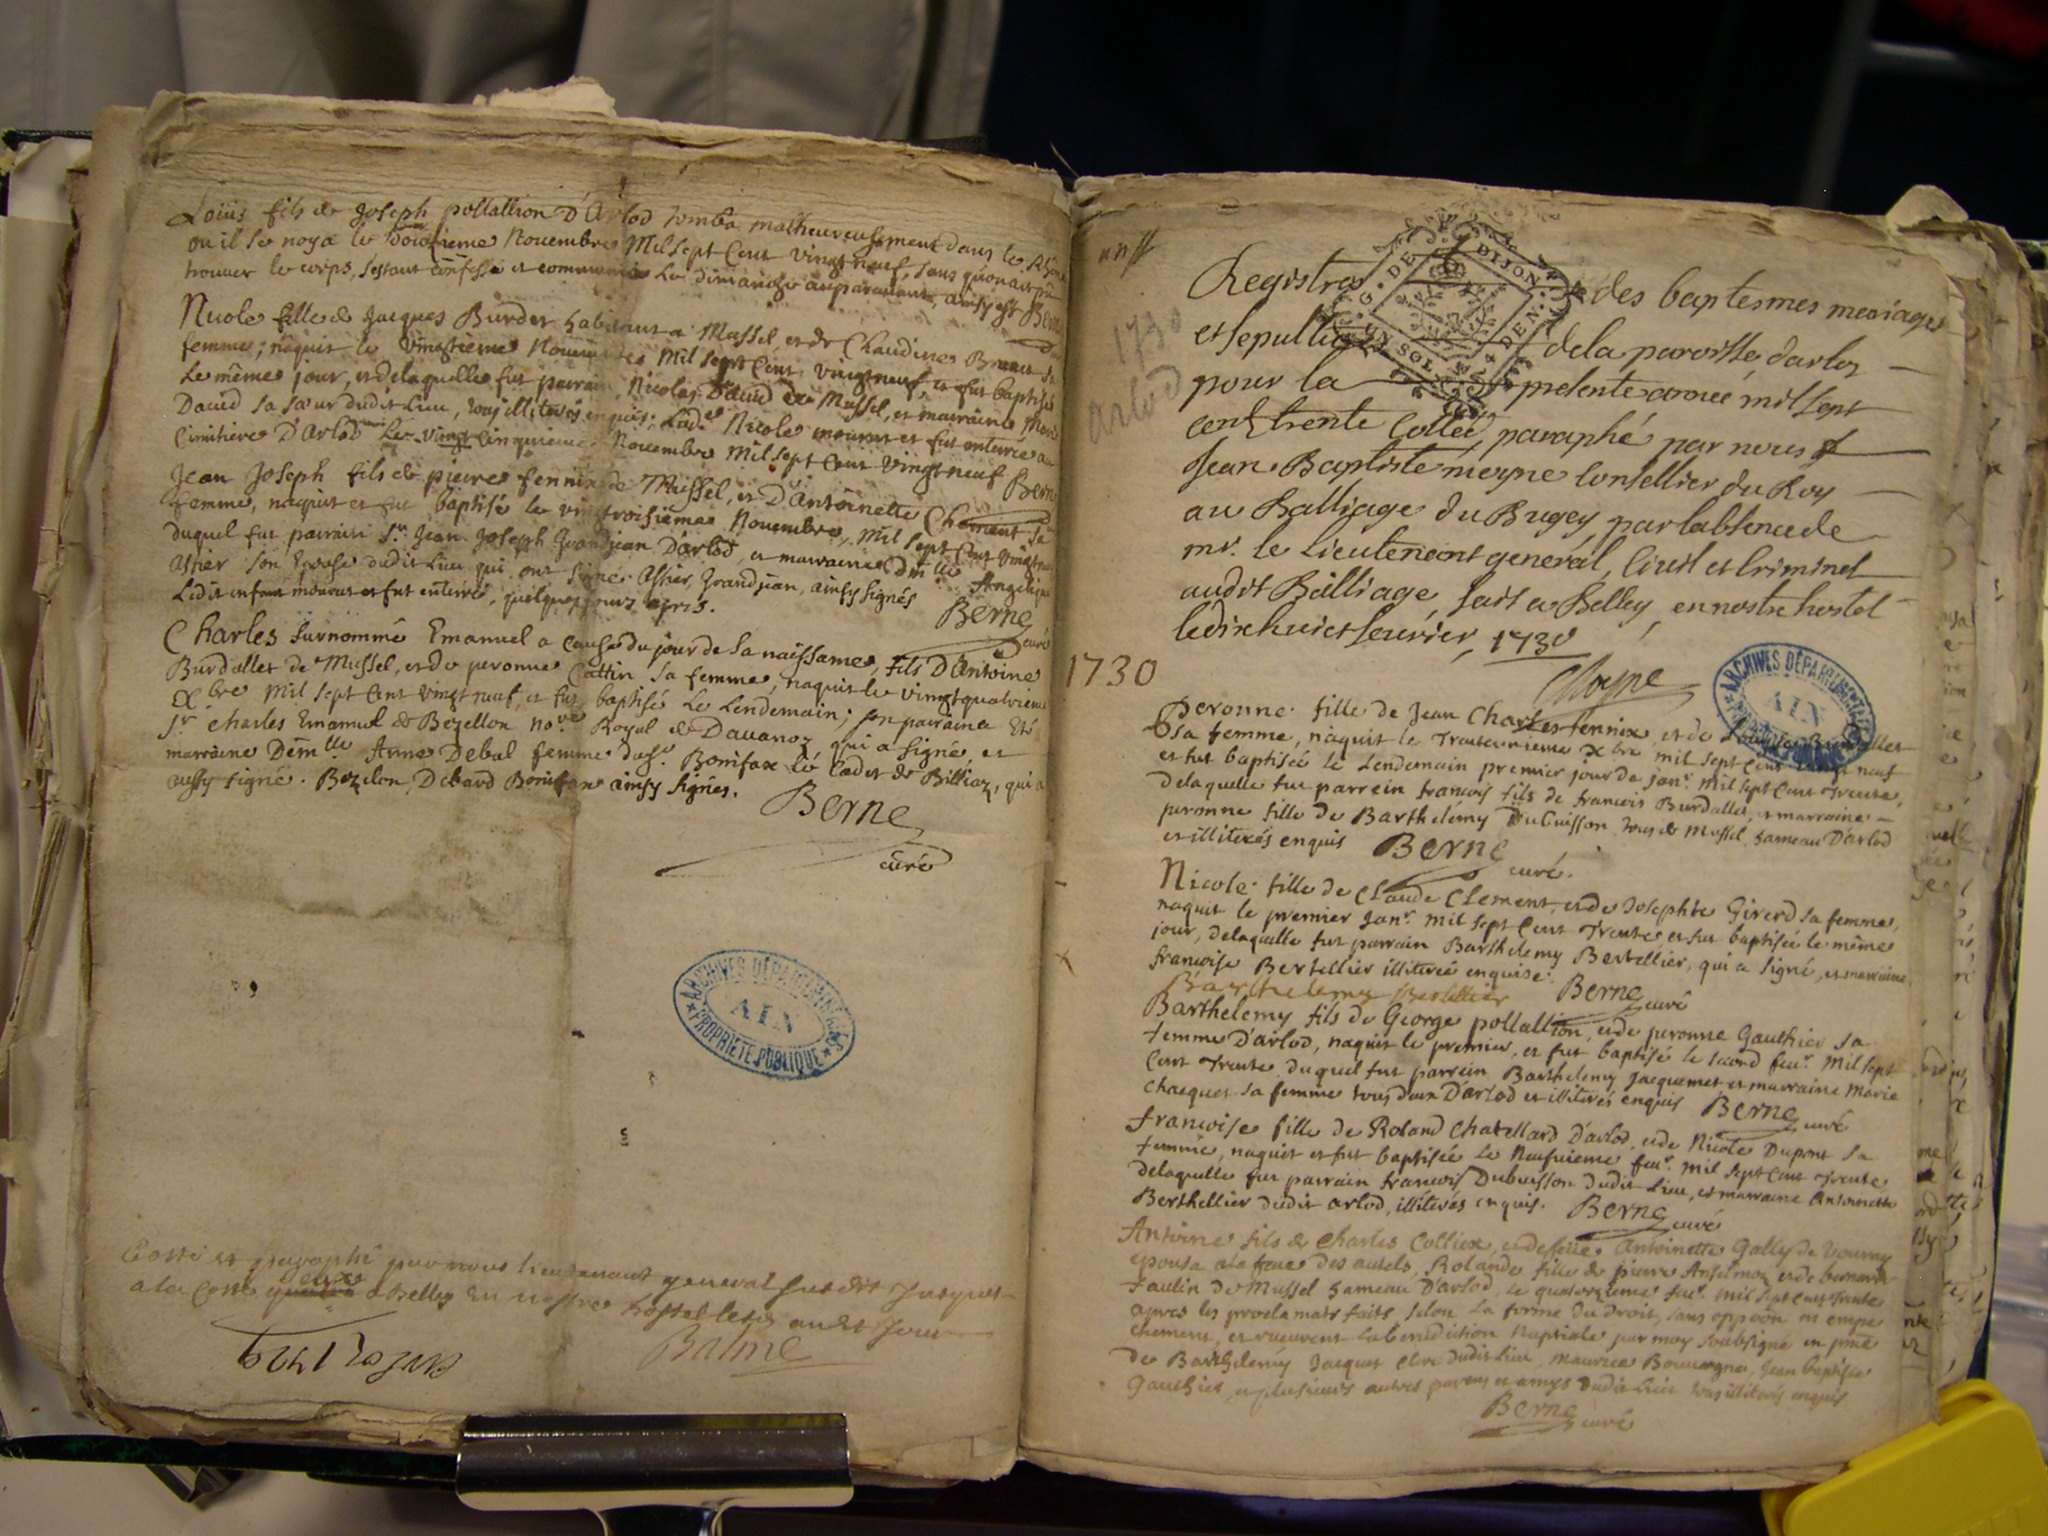 Loüis fils de Joseph pollallion D'Arlod tomba malheureusement dans le Rhône
ou il se noya le Novembre Mil sept Cent vingt neuf, sans qu'on ait pû
trouver le corps, s'estant confessé et communié Le dimanche auparavant, ainsy est Berne
Nicole fille de Jacques Burdet habitant a Mussel, et de Claudine sa
femme; naquit le vingtieme Novembre Mil sept Cent vingt neuf, et fut baptisée
Le même jour, et delaquelle fut parrain Nicolas David de Mussel, et marraine
David sa sœur dudit Lieu, tous illiterés enquis; Lad.e Nicole mourut et fut enterrée au
Cimitiere D'Arlod Le vingt cinquieme Novembre Mil sept Cent vingt neuf Berne
Jean Joseph fils de pierre fennix de Mussel, et D'antoinette Clement sa
femme, naquit et fut baptisé le vingtroisieme Novembre, Mil sept Cent vingt neuf
duquel fut parrain S.r Jean Joseph Grandjean D'arlod, et marraine Dm.lle Angelique
Astier son Epouse dudit Lieu qui ont signé. Astier, Grandjean, ainsy signés
Ledit enfant mourut et fut enterré, quelques jours apres. Berne curé
Charles surnommé Emanuel a cause du jour de sa naissance, fils D'Antoine
Burdallet de Mussel, et de peronne Cattin sa femme, naquit le vingt quatrieme
Xbre Mil sept Cent vingt neuf, et fut baptisé Le Lendemain; son parrain a Eté
S.r Charles Emanuel de Bezellon no.re Royal de Davanoz, qui a signé, et
marraine Dem.lle Anne Debal femme du S.r Bonifax Lé Cadet de Billiaz, qui a
aussy signé. Bezelon, Debard Bonifax ainsy signés.
Berne
curé
ARCHIVES DÉPARTEMENTALES
AIN
PROPRIÉTÉ PUBLIQUE
Cotté et paraphé par nous Lieutenant general susdit jusques
a la Cotte a Belley En nostre hostel lesd. an et jour
Balme
1730
Arlod
G. DE DIJON
Registres des baptesmes mariages
et sepultures de la paroisse darloz
pour la presente année mil sept
cent trente Cotté, paraphé par nous
Jean Baptiste moyne Conseillier du Roy
au Balliage du Bugey par labsence de
mr. le Lieutenant general, Civil et Criminel
audit Balliage, fait a Belley, en nostre hostel
le dixhuict feuvrier, 1730
Moyne
1730
ARCHIVES DÉPARTEMENTALES
AIN
Peronne fille de Jean Charles fennix, et de
sa femme, naquit le Trente unieme Xbre mil sept Cent vingt neuf
et fut baptisée Le Lendemain premier jour de jan.r Mil sept Cent Trente,
delaquelle fut parrein francois fils de francois Burdallet, et marraine
peronne fille de Barthelémy Dubuisson tous de Mussel hameau D'arlod
et illiterés enquis Berne curé.
Nicole fille de Claude Clement, et de Josephte Girerd sa femme,
naquit le premier Jan.r Mil sept Cent Trente, et fut baptisée le même
jour, delaquelle fut parrain Barthelemy Bertellier, qui a signé, et marraine
francoise Bertellier illiterée enquise. Berne curé
Barthelemy Bertellier
Barthelemy fils de George pollallion, et de peronne Gauthier sa
femme D'arlod, naquit le premier, et fut baptisé le second feu.r Mil sept
Cent Trente duquel fut parrein Barthelemy Jacquemet et marraine Marie
Chacquet sa femme tous deux D'arlod et illiterés enquis Berne curé
francoise fille de Roland Chatellard D'arlod, et de Nicole Dupont sa
femme, naquit et fut baptisée Le Neufuieme feu.r Mil sept Cent Trente
delaquelle fut parrain francois Dubuisson dudit Lieu, et marraine Antoinette
Berthellier dudit arlod, illiterés enquis. Berne curé
Antoine fils de Charles Colliex, et de feüe Antoinette Gally de Vouvray
epousa a la face des autels, Rolande fille de pierre Anselmoz et de bernarde
Faulin de Mussel hameau D'arlod, Le quatorzieme feu.r Mil sept Cent Trente
apres les proclamats faits selon La forme du Droit, sans oppoon ni empe
chement, et receurent La benediction Nuptiale par moy soubsigné en pnce
de Barthelemy Jacquet Clerc dudit Lieu, Maurice Bouvagne, Jean baptiste
Gauthier, et plusieurs autres parens et amys dudit Lieu tous illiterés enquis
Berne curé